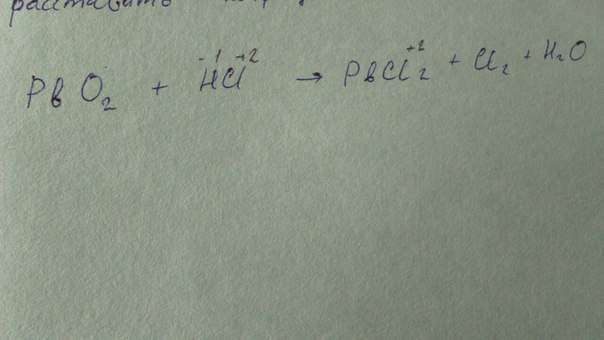 расставить
PbO₂ + H⁻¹Cl⁺² → PbCl₂⁺² + Cl₂ + H₂O